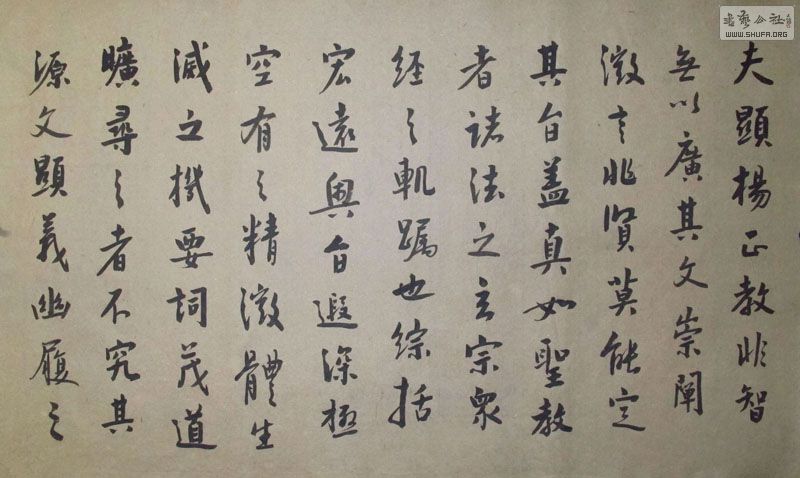 夫顯揚正教非智
無以廣其文崇闡
微言非賢莫能定
其旨蓋真如聖教
者諸法之玄宗衆
經之軌躅也綜括
宏遠奧旨遐深極
空有之精微體生
滅之機要詞茂道
曠尋之者不究其
源文顯義幽履之
書藝公社
WWW.SHUFA.ORG